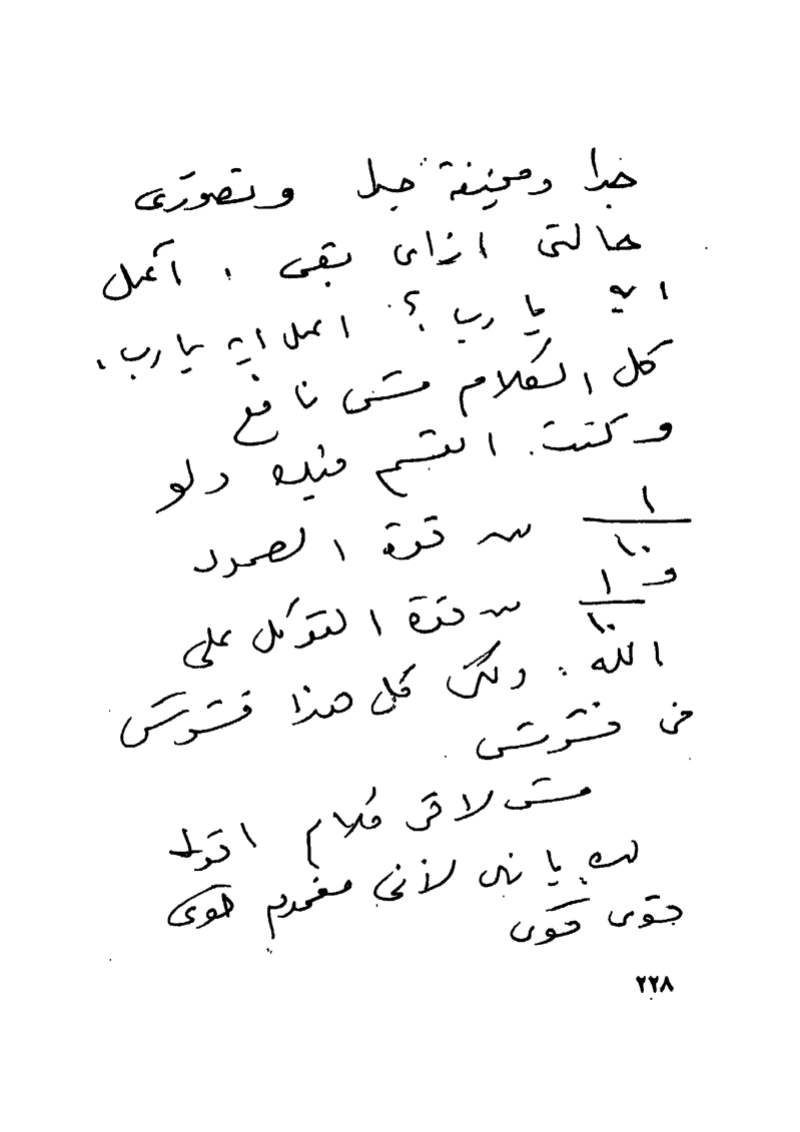 جدا ومخيفة جدا وتصورى
حالتى ازاى بقى . أعمل
ايه يا رب ؟ اعمل ايه يا رب .
كل الكلام مش نافع
وكنت ابتسم فيك ولو
١/١٠ من قوة الصمود
و ١/١٠ من قوة التوكل على
الله . ولكن كل هذا فشوش
فى فشوش
مش لاقى كلام اقوله
لك يا نهى لأنى مغموم قوى
قوى قوى
٢٢٨